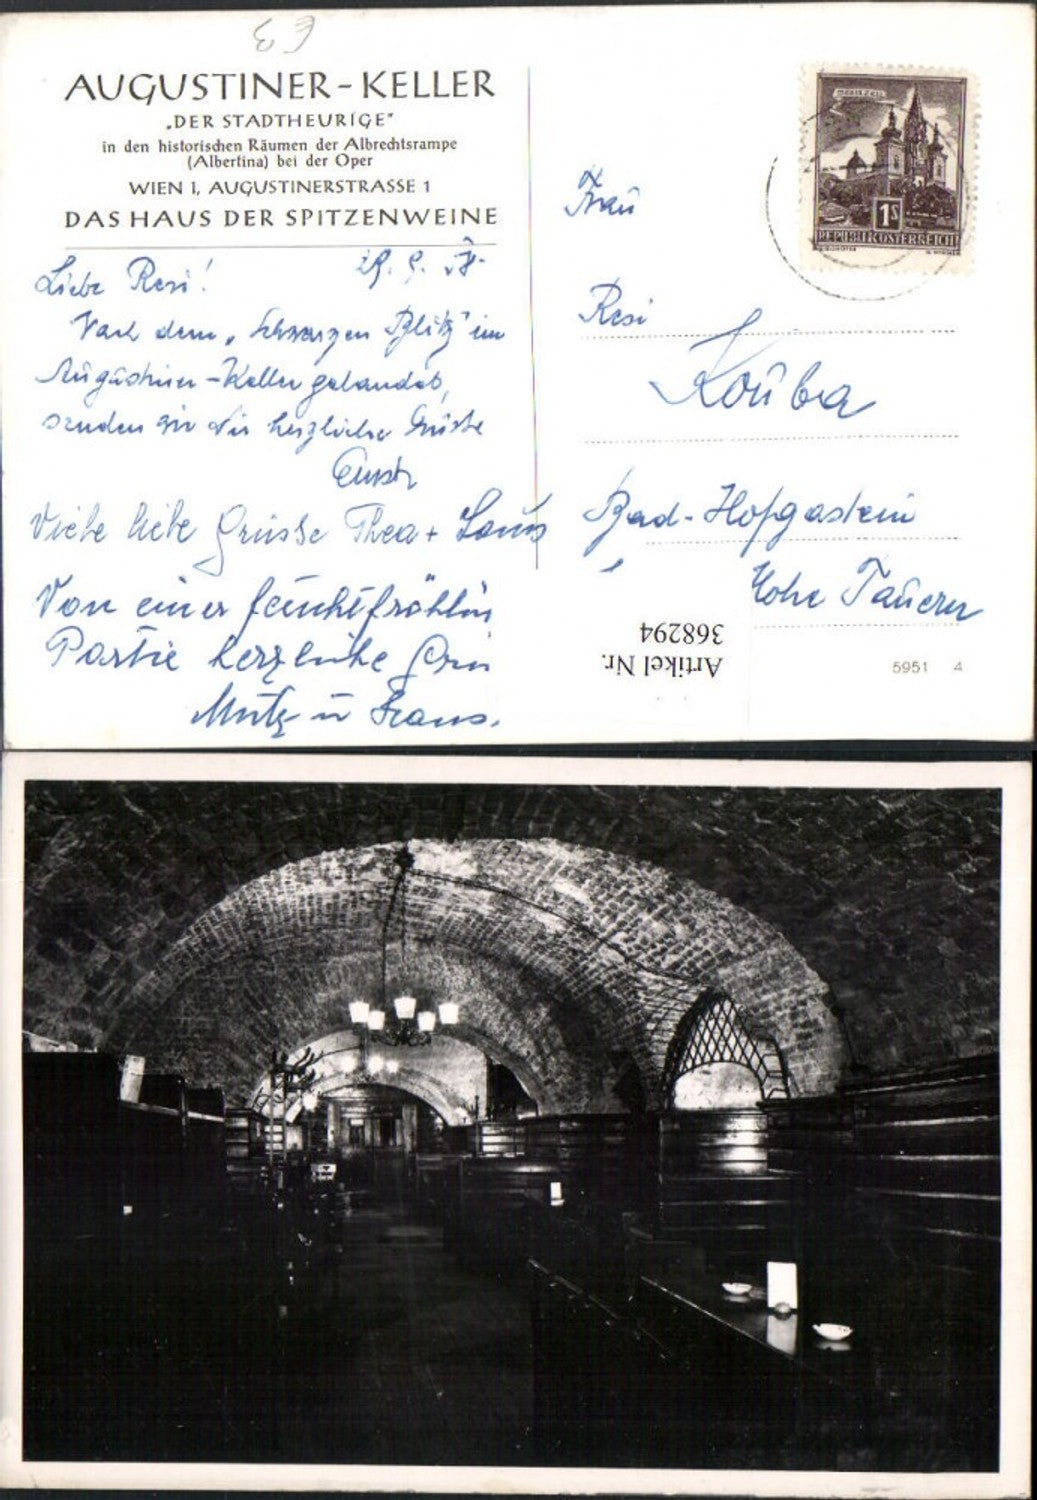 AUGUSTINER-KELLER
„DER STADTHEURIGE"
in den historischen Räumen der Albrechtsrampe
(Albertina) bei der Oper
WIEN I, AUGUSTINERSTRASSE 1
DAS HAUS DER SPITZENWEINE
29. 9. 58.
Liebe Resi!
Nach dem „Schwarzen Blitz" im
Augustiner-Keller gelandet,
senden wir Dir herzliche Grüße
Viele liebe Grüsse Thea +
Von einer feuchtfröhlin
Partie herzliche Grü
u
MARIAZELL
1S
REPUBLIK ÖSTERREICH
Frau
Resi
Kouba
Bad-Hofgastein
Hohe Tauern
Artikel Nr.
368294
5951 4